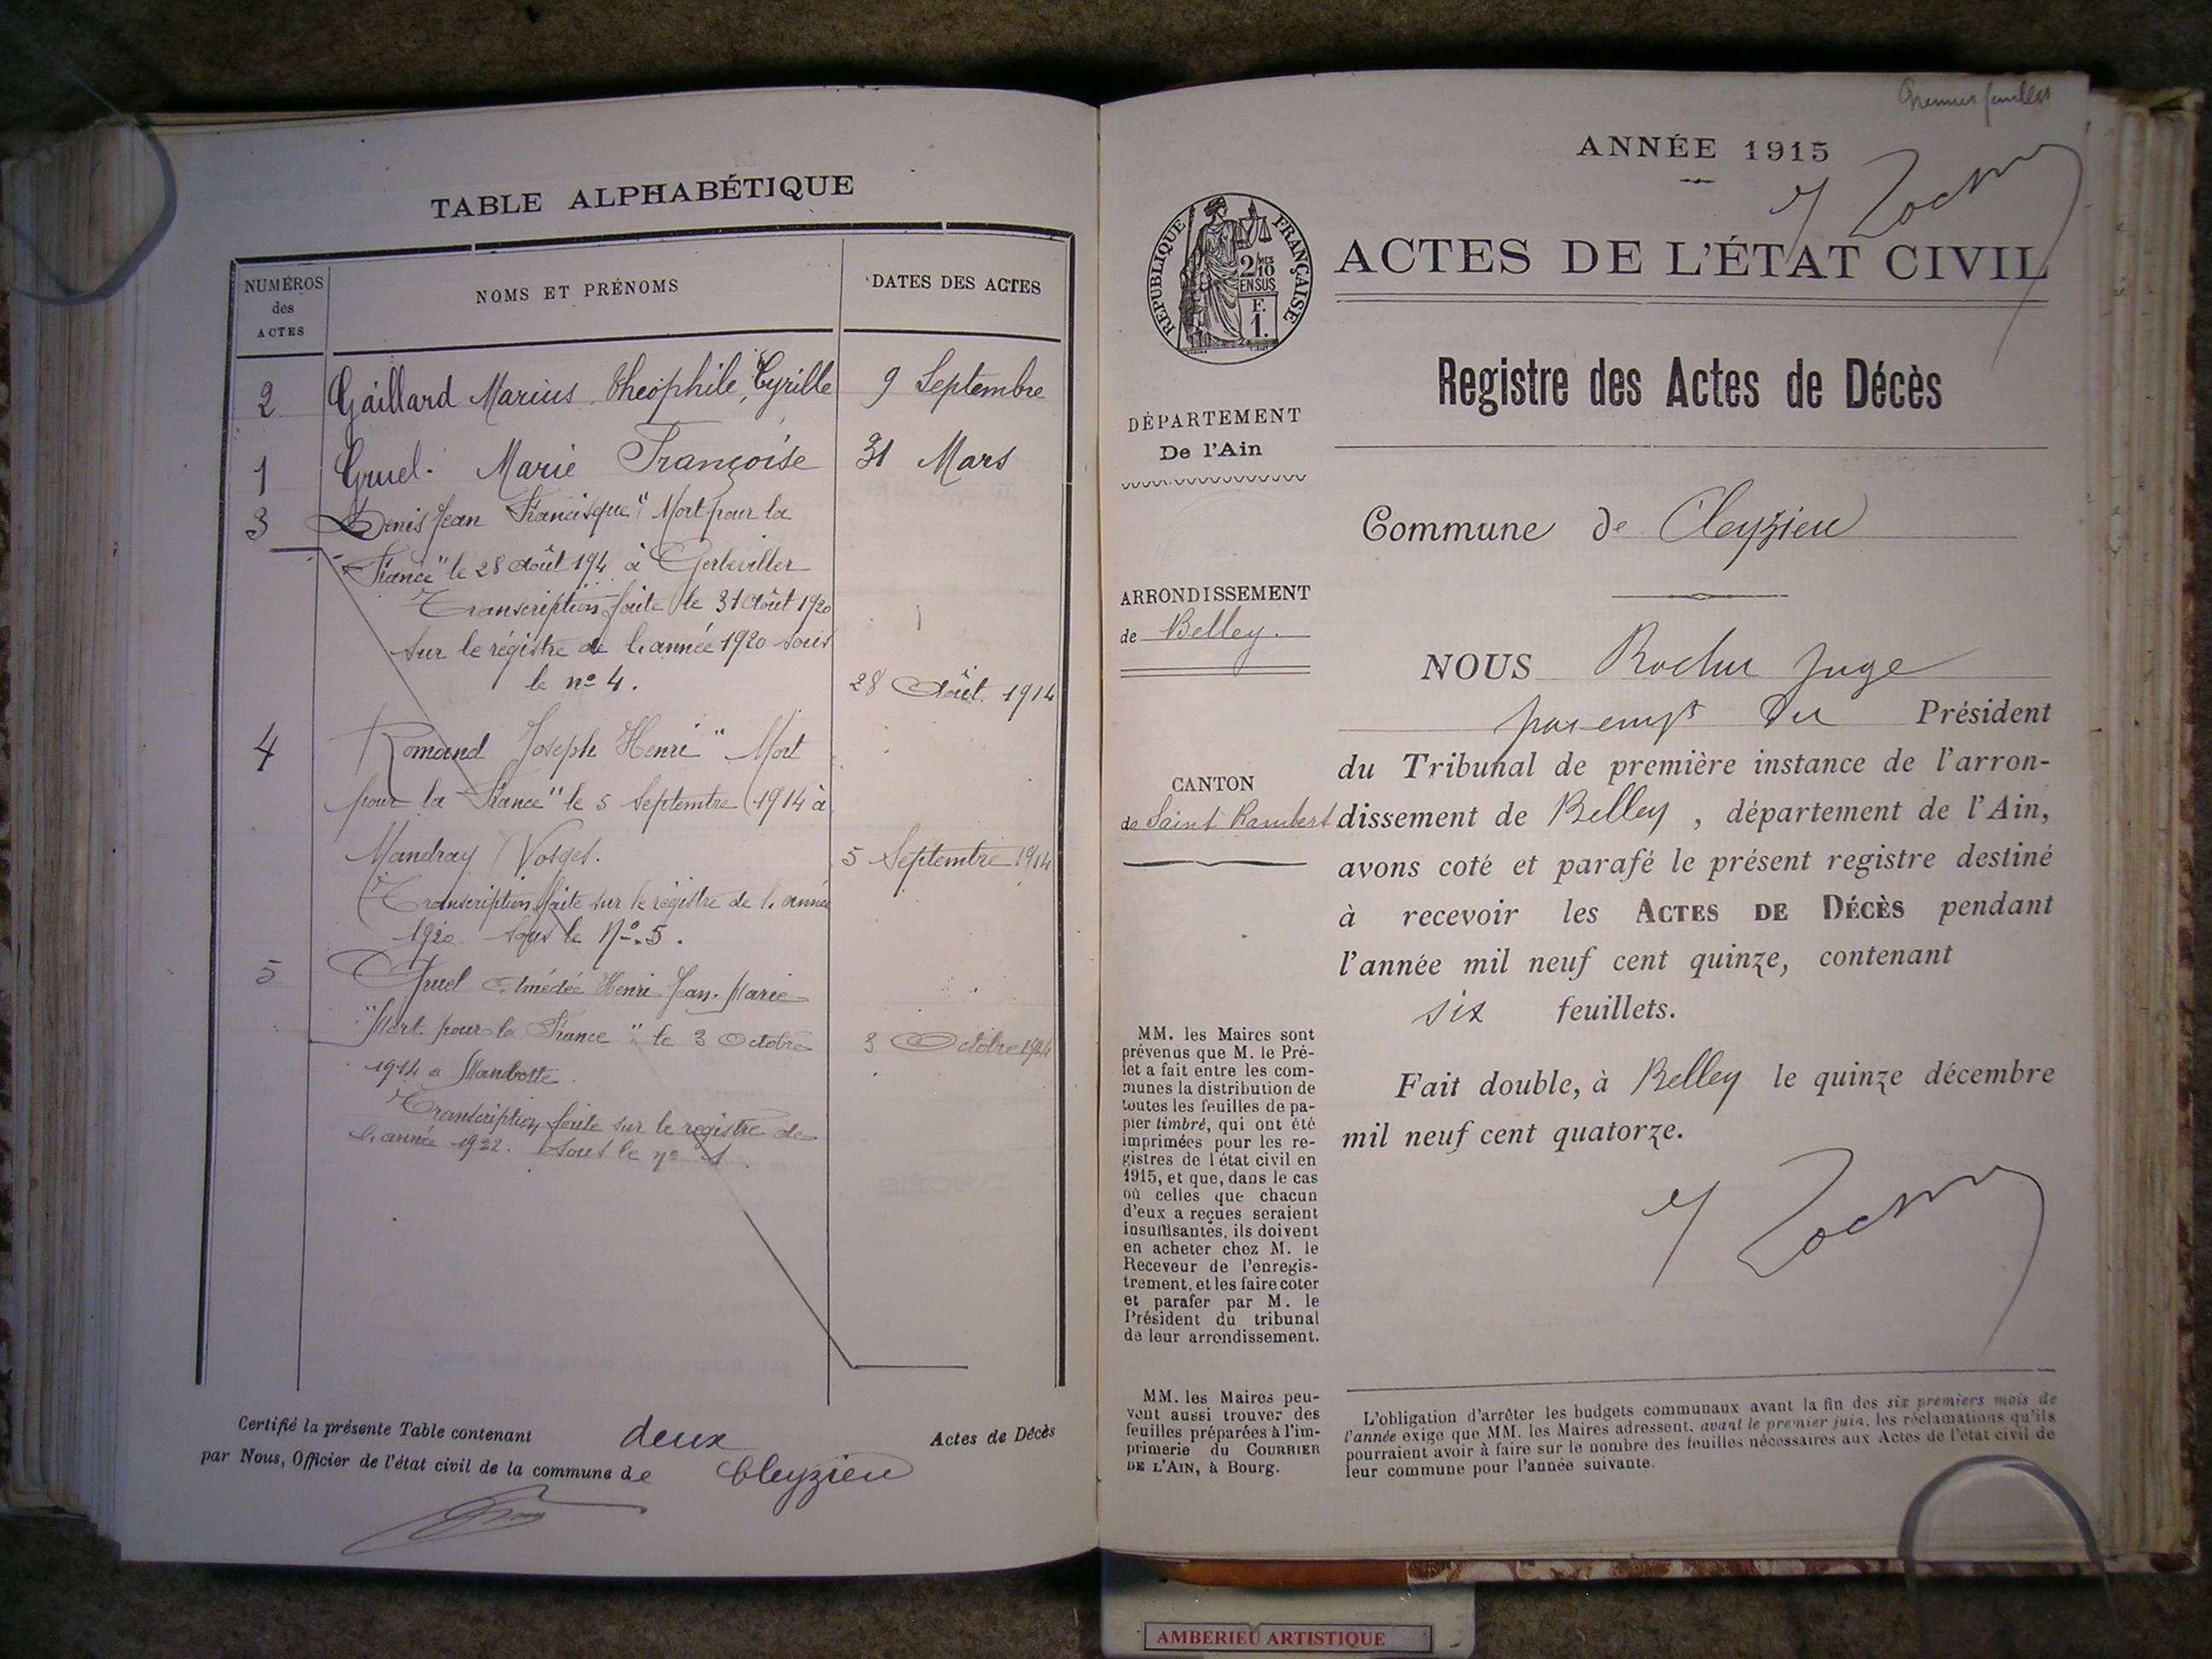 TABLE ALPHABÉTIQUE
NUMÉROS des ACTES
NOMS ET PRÉNOMS
DATES DES ACTES
2 Gaillard Marius Théophile, Cyrille 9 Septembre
1 Gruel Marie Françoise 31 Mars
3 Denis Jean Francisque "Mort pour la
France" le 28 Août 194 à Gerbeviller
Transcription faite le 31 Août 1920
sur le régistre de l'année 1920 sous
le nº 4. 28 Août 1914
4 Romand Joseph Henri "Mort
pour la France" le 5 Septembre 1914 à
Mandray (Vosges. 5 Septembre 1914
Transcription faite sur le régistre de l'année
1920 sous le Nº 5.
5 Gruel Amédée Henri Jean-Marie
"Mort pour la France" le 3 Octobre 3 Octobre 1914
1914 a
Transcription faite sur le registre de
l'année 1922. Sous le nº 1.
Certifié la présente Table contenant deux Actes de Décès
par Nous, Officier de l'état civil de la commune de Cleyzieu
Premier feuillet
ANNÉE 1915
RÉPUBLIQUE FRANÇAISE
2/10 MES
EN SUS
F.
1.
ACTES DE L'ÉTAT CIVIL
Registre des Actes de Décès
DÉPARTEMENT
De l'Ain
Commune de Cleyzieu
ARRONDISSEMENT
de Belley.
NOUS Rocher Juge
par empt du Président
du Tribunal de première instance de l'arron-
CANTON
de Saint Rambert
dissement de Belley, département de l'Ain,
avons coté et parafé le présent registre destiné
à recevoir les ACTES DE DÉCÈS pendant
l'année mil neuf cent quinze, contenant
six feuillets.
Fait double, à Belley le quinze décembre
mil neuf cent quatorze.
MM. les Maires sont
prévenus que M. le Pré-
fet a fait entre les com-
munes la distribution de
toutes les feuilles de pa-
pier timbré, qui ont été
imprimées pour les re-
gistres de l'état civil en
1915, et que, dans le cas
où celles que chacun
d'eux a reçues seraient
insuffisantes, ils doivent
en acheter chez M. le
Receveur de l'enregis-
trement, et les faire coter
et parafer par M. le
Président du tribunal
de leur arrondissement.
MM. les Maires peu-
vent aussi trouver des
feuilles préparées à l'im-
primerie du COURRIER
DE L'AIN, à Bourg.
L'obligation d'arrêter les budgets communaux avant la fin des six premiers mois de
l'année exige que MM. les Maires adressent, avant le premier juin, les réclamations qu'ils
pourraient avoir à faire sur le nombre des feuilles nécessaires aux Actes de l'état civil de
leur commune pour l'année suivante.
AMBERIEU ARTISTIQUE